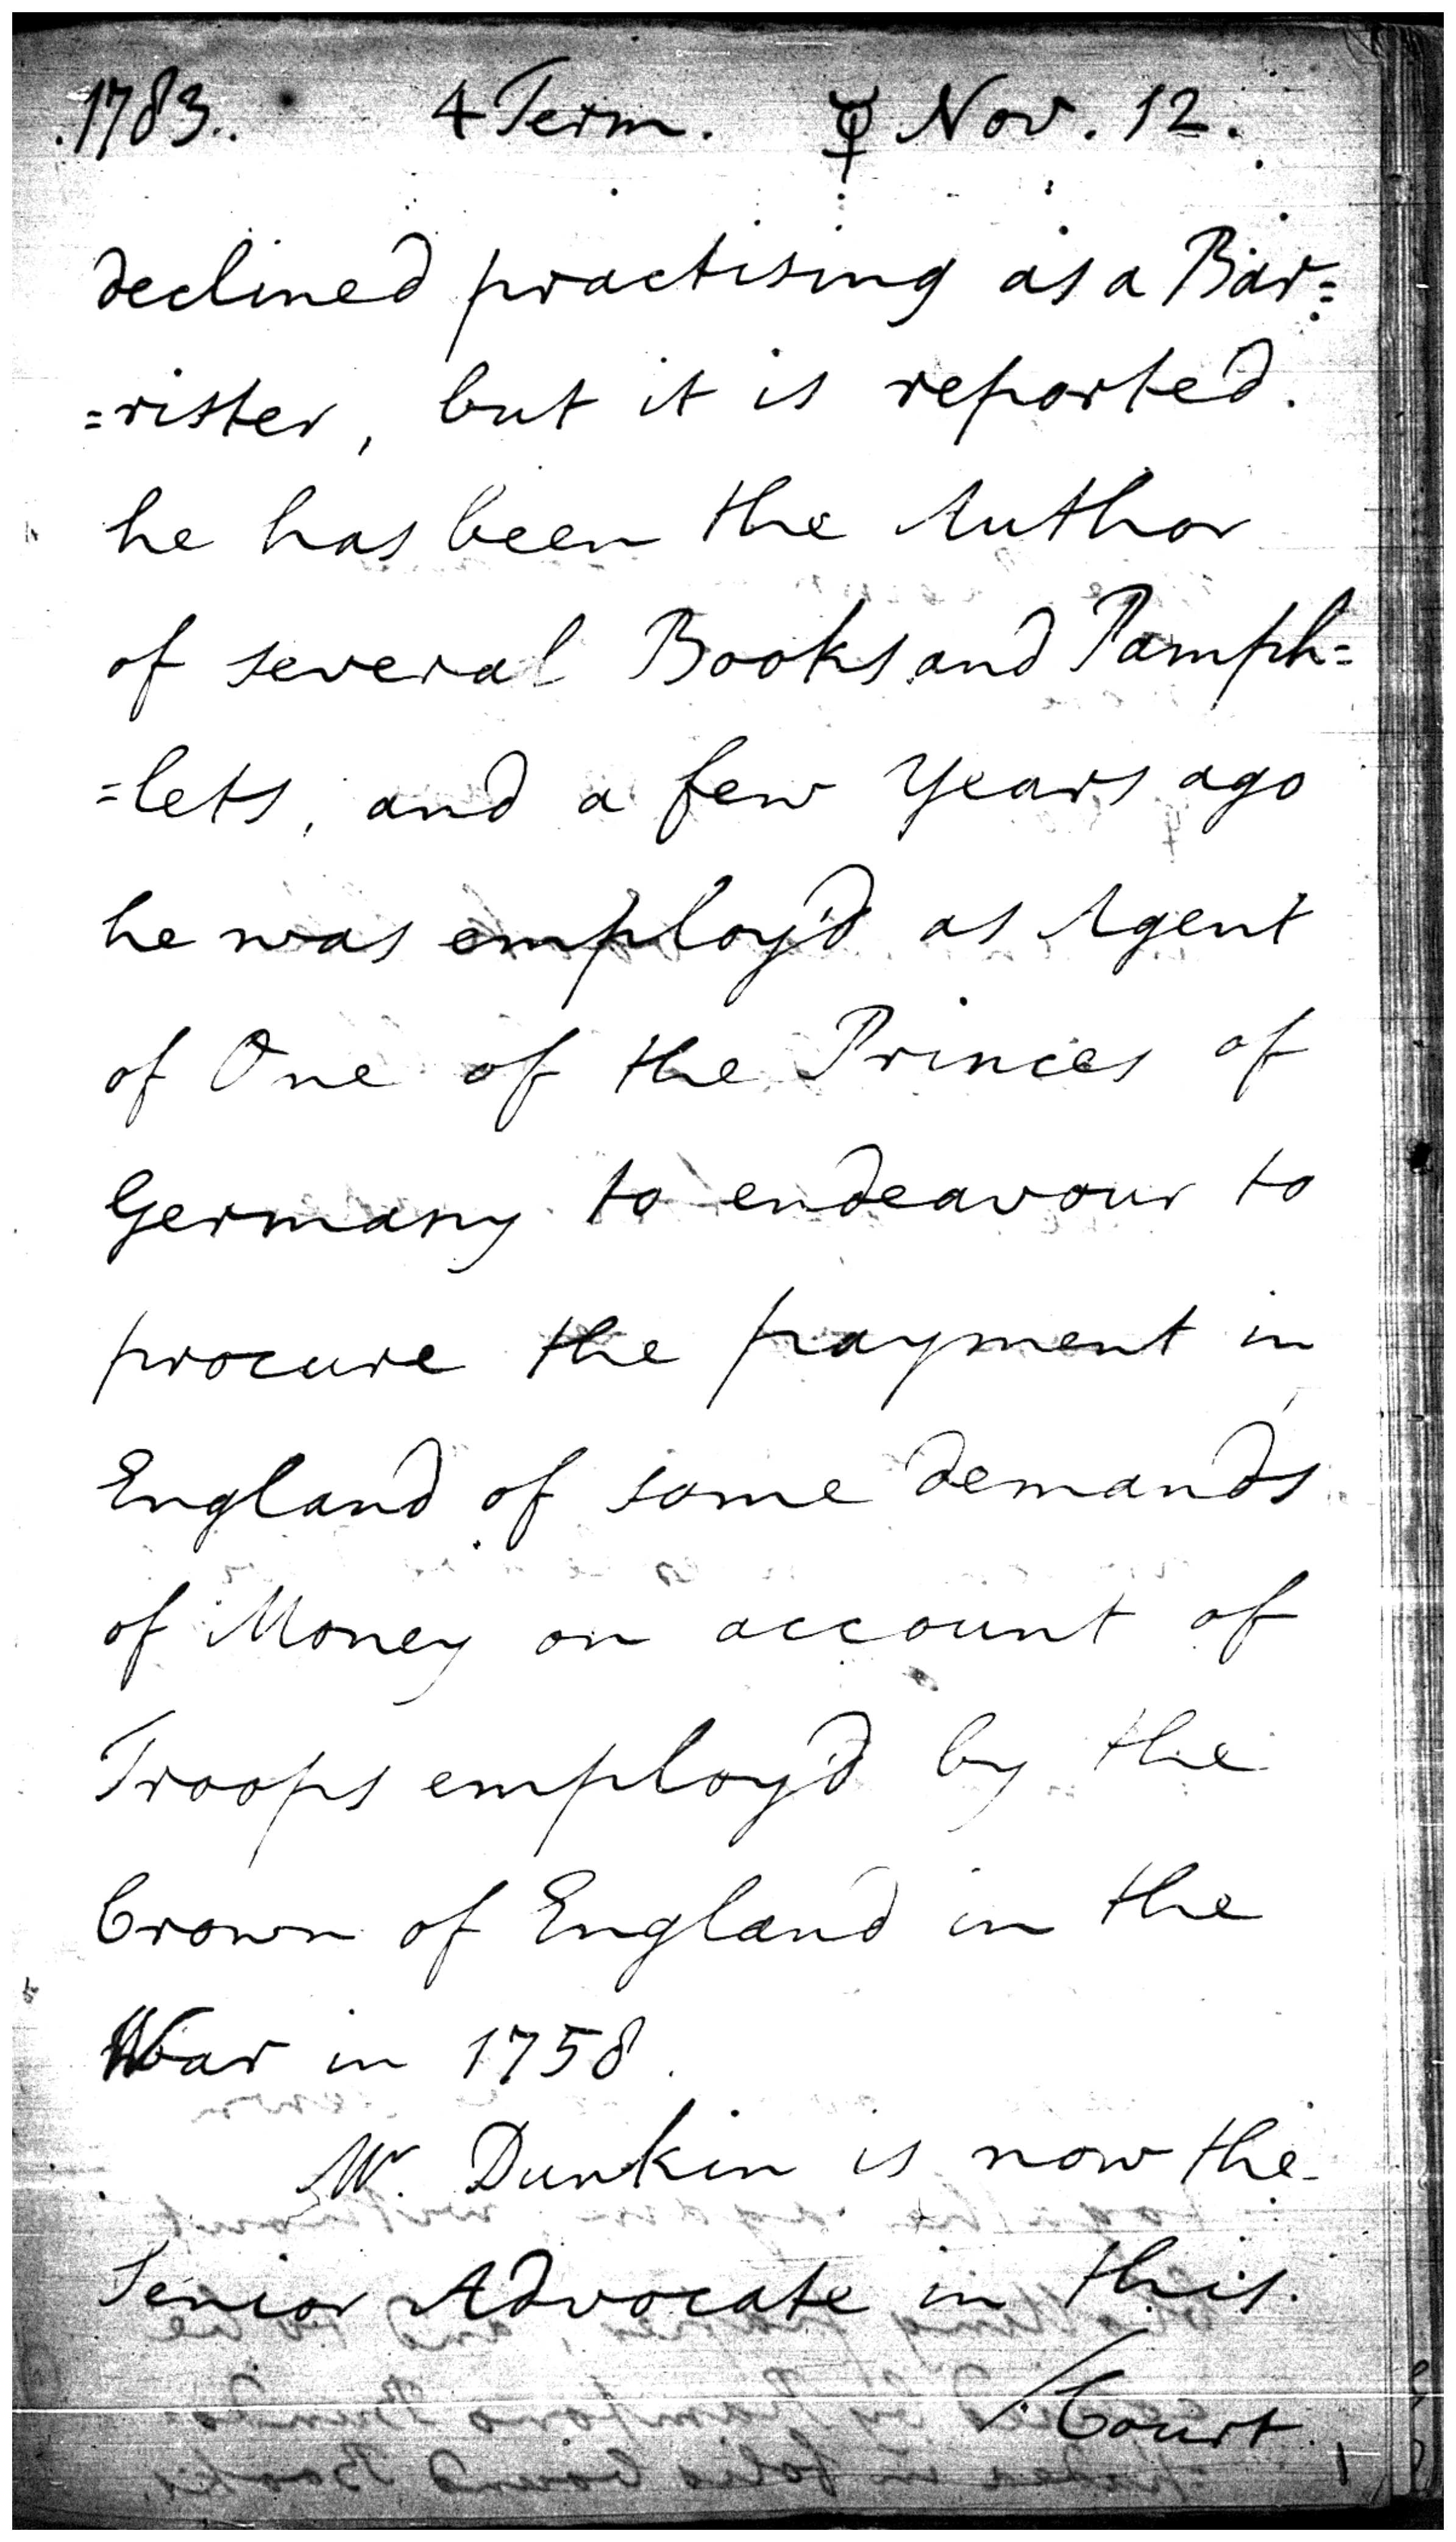 1783. 4 Term. ☿ Nov. 12.
declined practising as a Bar=
=rister, but it is reported.
he has been the Author
of several Books and Pamph=
=lets, and a few Years ago
he was employ'd as Agent
of One of the Princes of
Germany to endeavour to
procure the payment in
England of some demands
of Money on account of
Troops employ'd by the
Crown of England in the
War in 1758.
Mr. Dunkin is now the
Senior Advocate in this.
/Court.